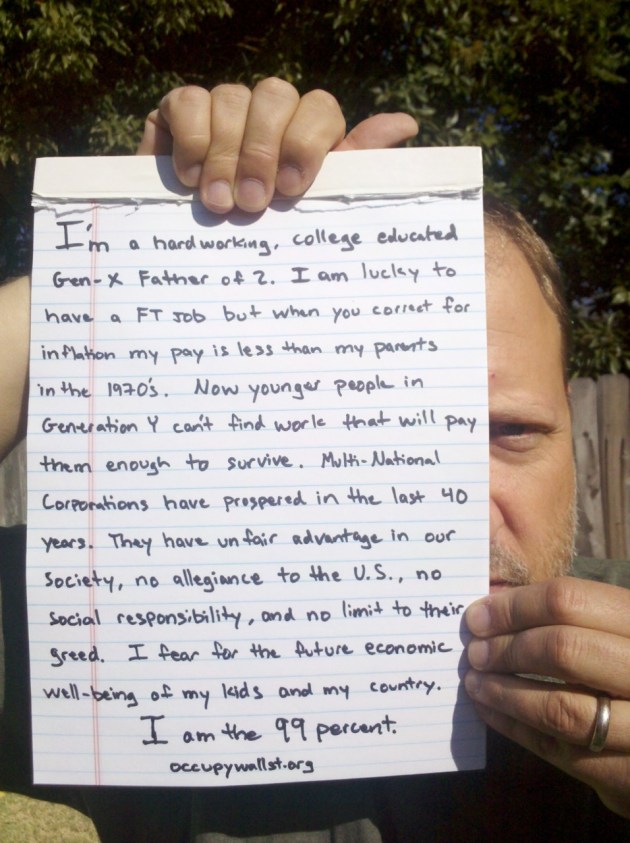 I'm a hardworking, college educated
Gen-X Father of 2. I am lucky to
have a FT Job but when you correct for
inflation my pay is less than my parents
in the 1970's. Now younger people in
Generation Y can't find work that will pay
them enough to survive. Multi-National
Corporations have prospered in the last 40
years. They have unfair advantage in our
society, no allegiance to the U.S., no
social responsibility, and no limit to their
greed. I fear for the future economic
well-being of my kids and my country.
I am the 99 percent.
occupywallst.org